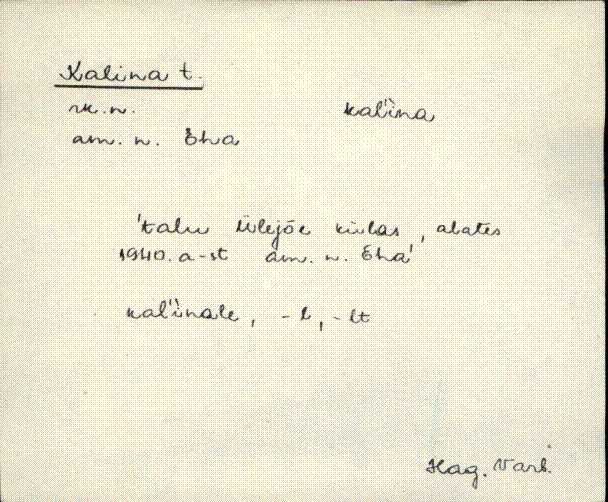 Kalina t.
rk. n. kal'ìna
am. n. Eha
'talu Ülejõe külas, alates
1940. a-st am. n. Eha'
kal'ìnale, -l, -lt
Hag. Varb.